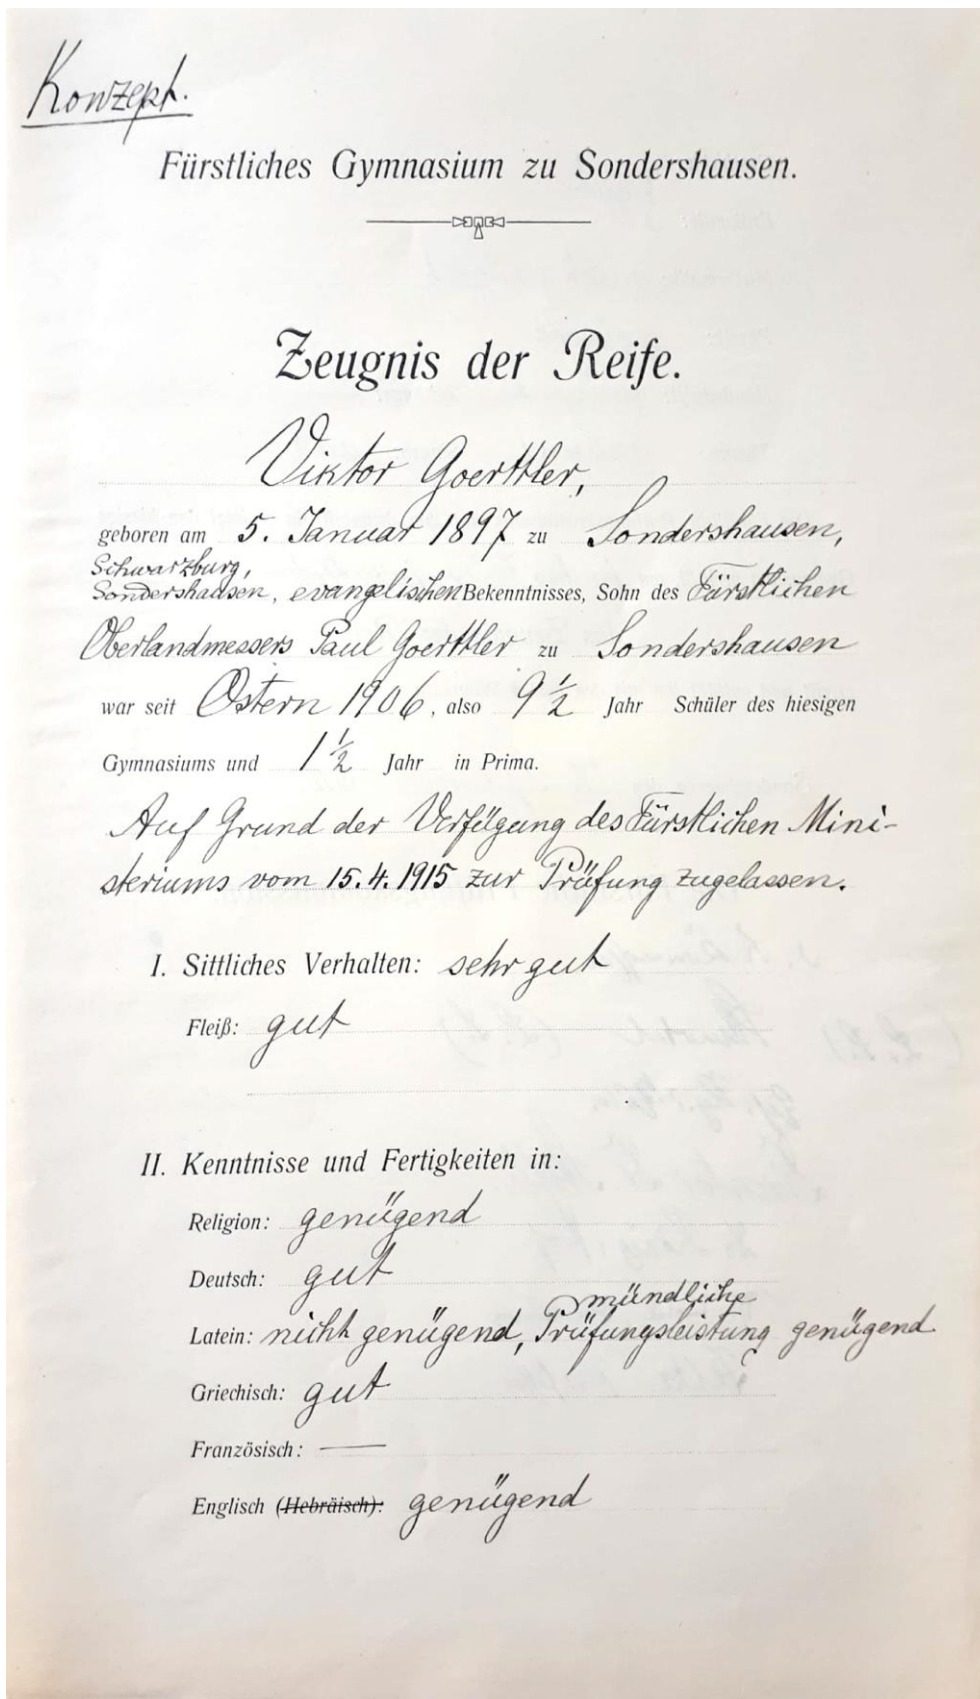 Konzept.
Fürstliches Gymnasium zu Sondershausen.
Zeugnis der Reife.
Viktor Goerttler,
geboren am 5. Januar 1897 zu Sondershausen,
Schwarzburg,
Sondershausen, evangelischen Bekenntnisses, Sohn des Fürstlichen
Oberlandmessers Paul Goerttler zu Sondershausen
war seit Ostern 1906, also 9 1/2 Jahr Schüler des hiesigen
Gymnasiums und 1 1/2 Jahr in Prima.
Auf Grund der Verfügung des Fürstlichen Mini-
steriums vom 15.4.1915 zur Prüfung zugelassen.
I. Sittliches Verhalten: sehr gut
Fleiß: gut
II. Kenntnisse und Fertigkeiten in:
Religion: genügend
Deutsch: gut
mündliche
Latein: nicht genügend, Prüfungsleistung genügend
Griechisch: gut
Französisch: —
Englisch (Hebräisch): genügend